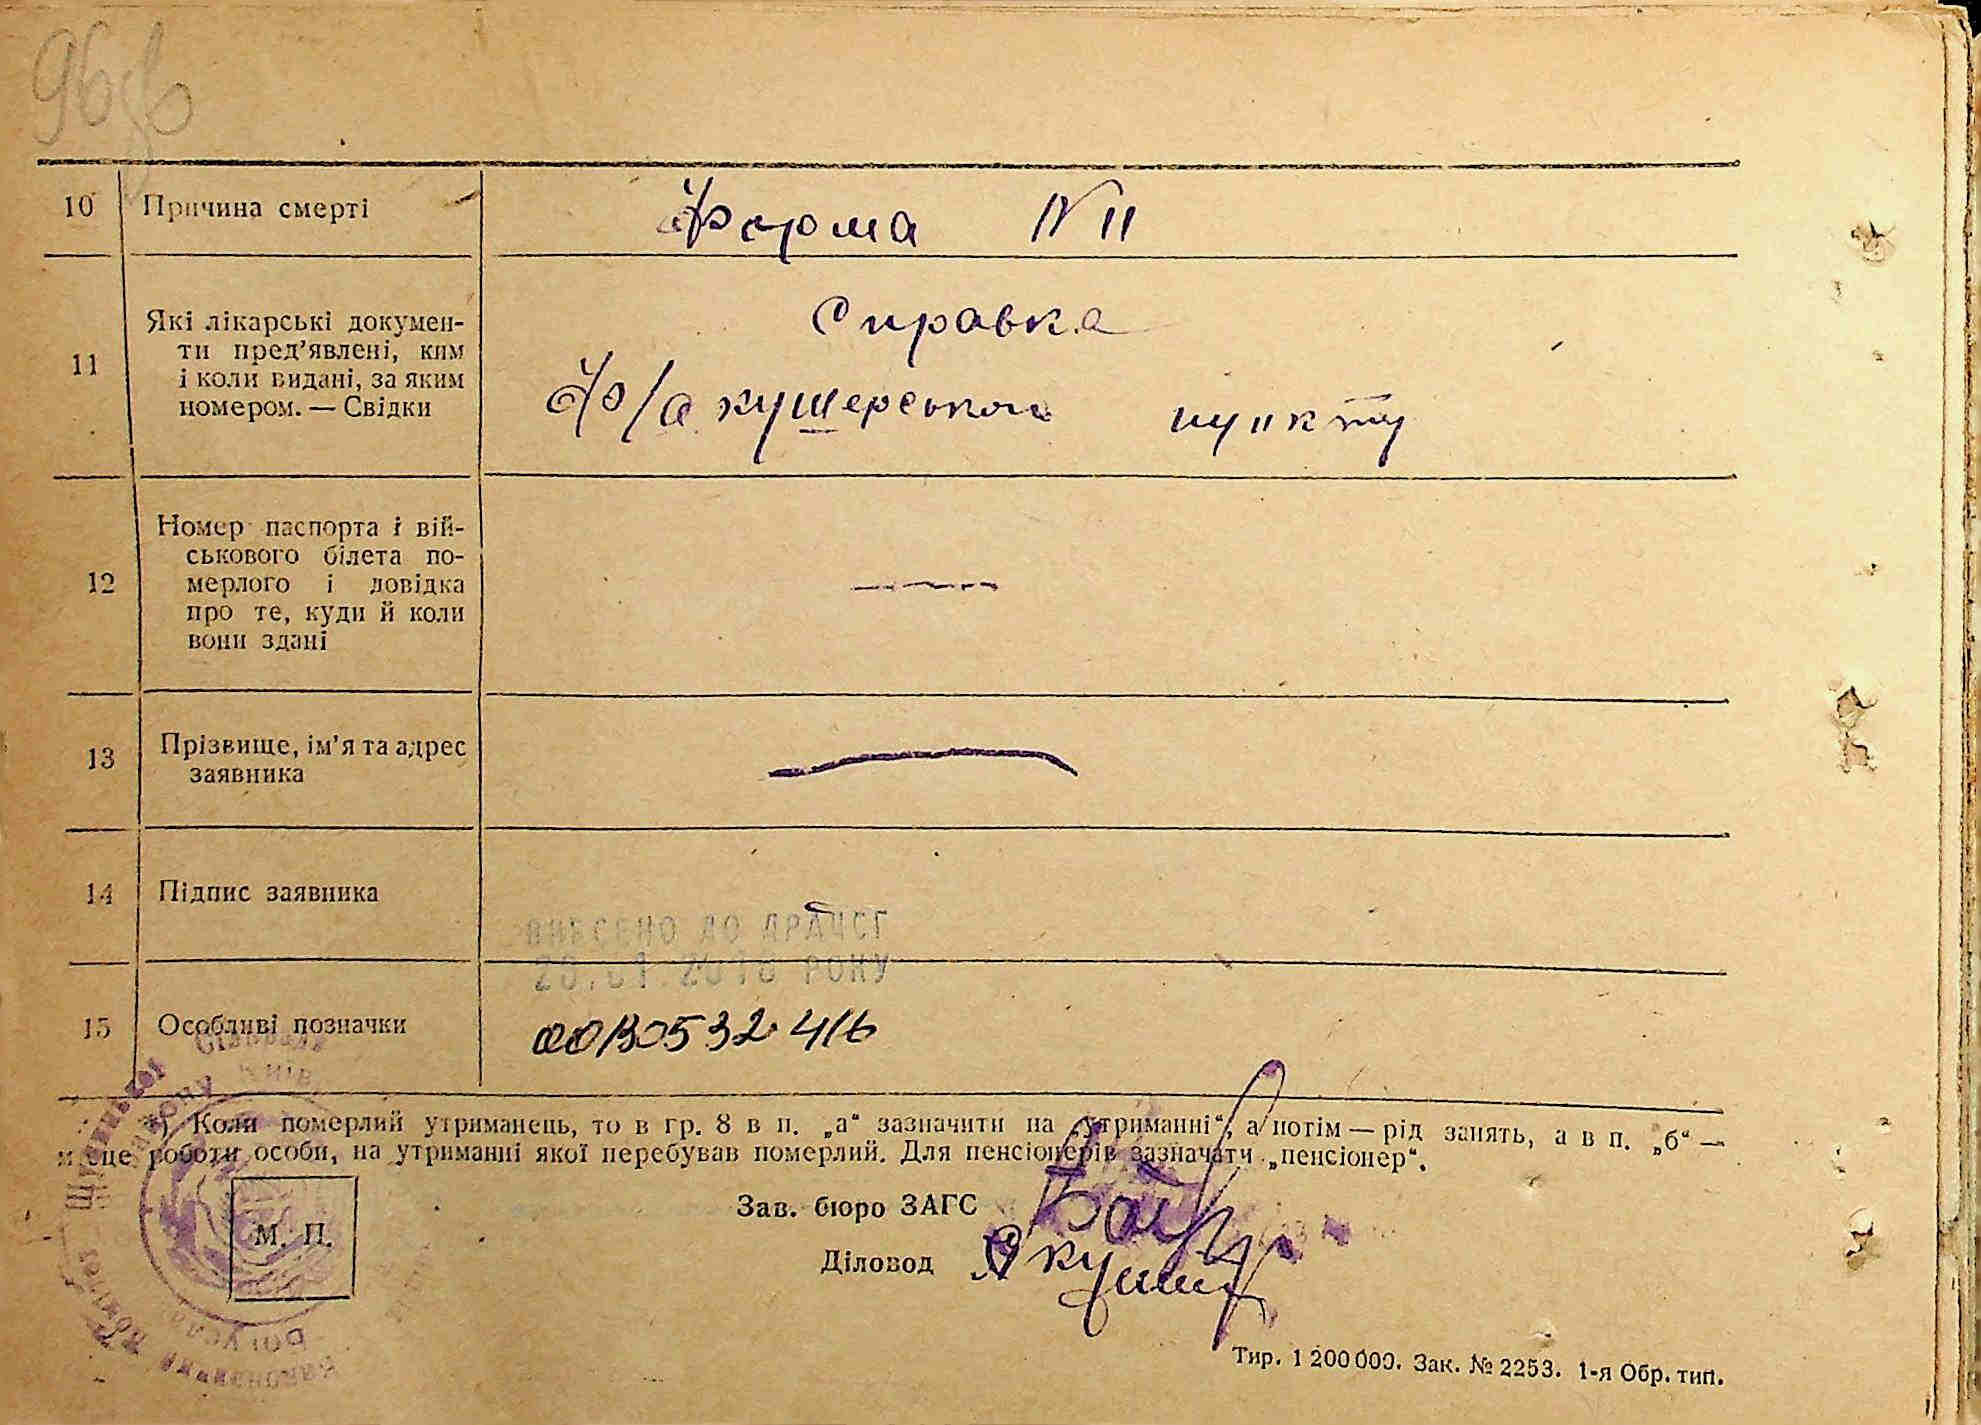 10 Причина смерті
Форма №11
11 Які лікарські докумен-
ти пред’явлені, ким
і коли видані, за яким
номером. — Свідки
Справка
Ф/акушерського пункту
12 Номер паспорта і вій-
ськового білета по-
мерлого і довідка
про те, куди й коли
вони здані
—
13 Прізвище, ім’я та адрес
заявника
—
14 Підпис заявника
ВНЕСЕНО ДО ДРАЦСГ
РОКУ
15 Особливі позначки
Коли померлий утриманець, то в гр. 8 в п. „а“ зазначити на „утриманні“, а потім — рід занять, а в п. „б“ —
місце роботи особи, на утриманні якої перебував померлий. Для пенсіонерів зазначати „пенсіонер“.
М. П.
Зав. бюро ЗАГС
Діловод
Тир. 1 200 000. Зак. № 2253. 1-я Обр. тип.